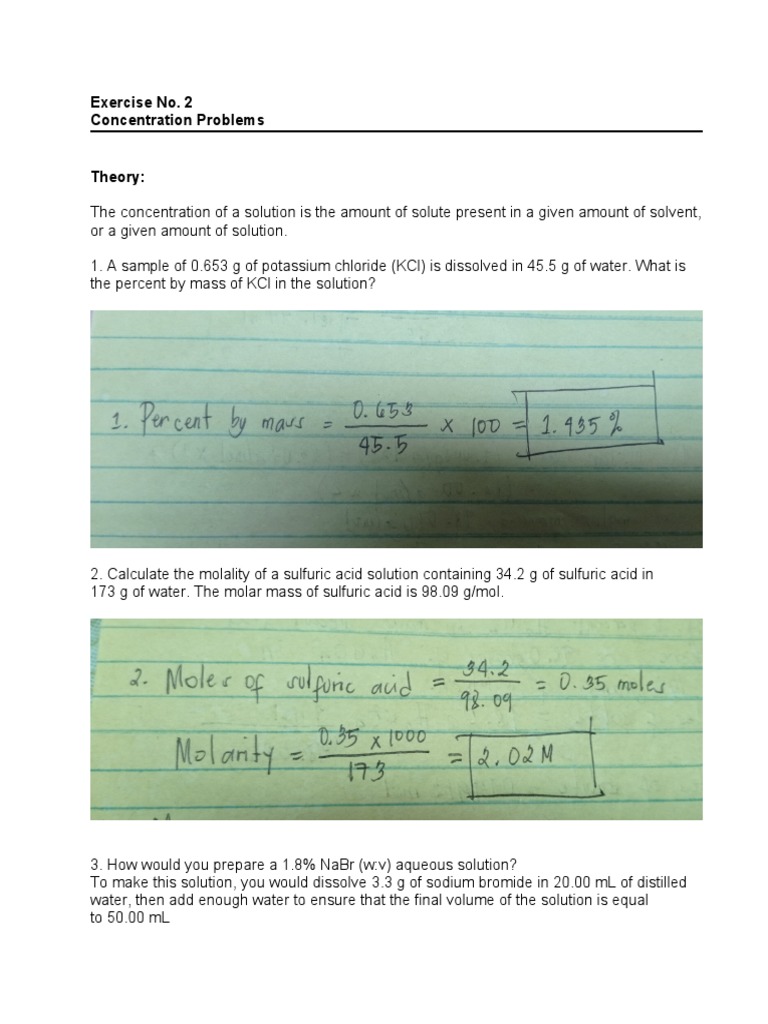 Exercise No. 2
Concentration Problems
Theory:
The concentration of a solution is the amount of solute present in a given amount of solvent,
or a given amount of solution.
1. A sample of 0.653 g of potassium chloride (KCl) is dissolved in 45.5 g of water. What is
the percent by mass of KCl in the solution?
1. Percent by mass = 0.653 / 45.5 x 100 = 1.435 %
2. Calculate the molality of a sulfuric acid solution containing 34.2 g of sulfuric acid in
173 g of water. The molar mass of sulfuric acid is 98.09 g/mol.
2. Moles of sulfuric acid = 34.2 / 98.09 = 0.35 moles
Molarity = 0.35 x 1000 / 173 = 2.02 M
3. How would you prepare a 1.8% NaBr (w:v) aqueous solution?
To make this solution, you would dissolve 3.3 g of sodium bromide in 20.00 mL of distilled
water, then add enough water to ensure that the final volume of the solution is equal
to 50.00 mL